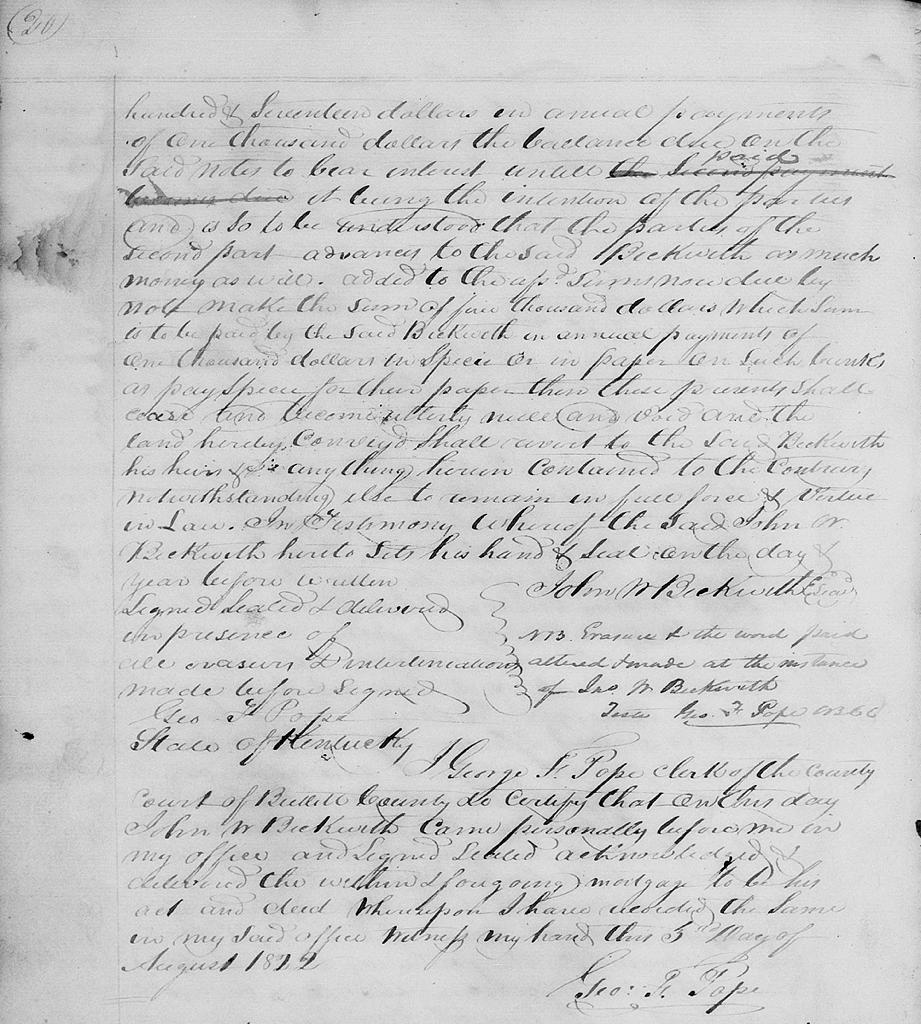 hundred & Seventeen dollars in annual payments
of one thousand dollars the ballance due on the
Said notes to bear interest untill the Second payment paid
becomes due it being the intention of the parties
and is so to be understood that the parties of the
Second part advances to the said Beckwith as much
money as will added to the afsd. Sums now due by
note make the Sum of five thousand dollars which Sum
is to be paid by the Said Beckwith in annual payments of
One thousand dollars in Specie or in paper on such banks
as pay Specie for their paper then these presents Shall
cease and become utterly null and void and the
land hereby Convey'd Shall revert to the Said Beckwith
his heirs &c any thing herein Contained to the Contrary
notwithstanding else to remain in full force & Virtue
in Law. In Testimony Whereof the Said John W.
Beckwith hereto Sets his hand & Seal on the day &
year before written
John W Beckwith Seal
Signed Sealed & delivered
in presence of
all erasures & interlineations
made before Signed
Geo F Pope
NB. Erasure & the word paid
altered & made at the instance
of Jno W Beckwith
Teste Geo. F. Pope
State of Kentucky
I George F. Pope clerk of the County
Court of County do Certify that on this day
John W Beckwith Came personally before me in
my office and Signed Sealed acknowledged &
delivered the within & foregoing mortgage to be his
act and deed Whereupon I have recorded the Same
in my Said office Witness my hand this 5th Day of
August 1822
Geo. F. Pope